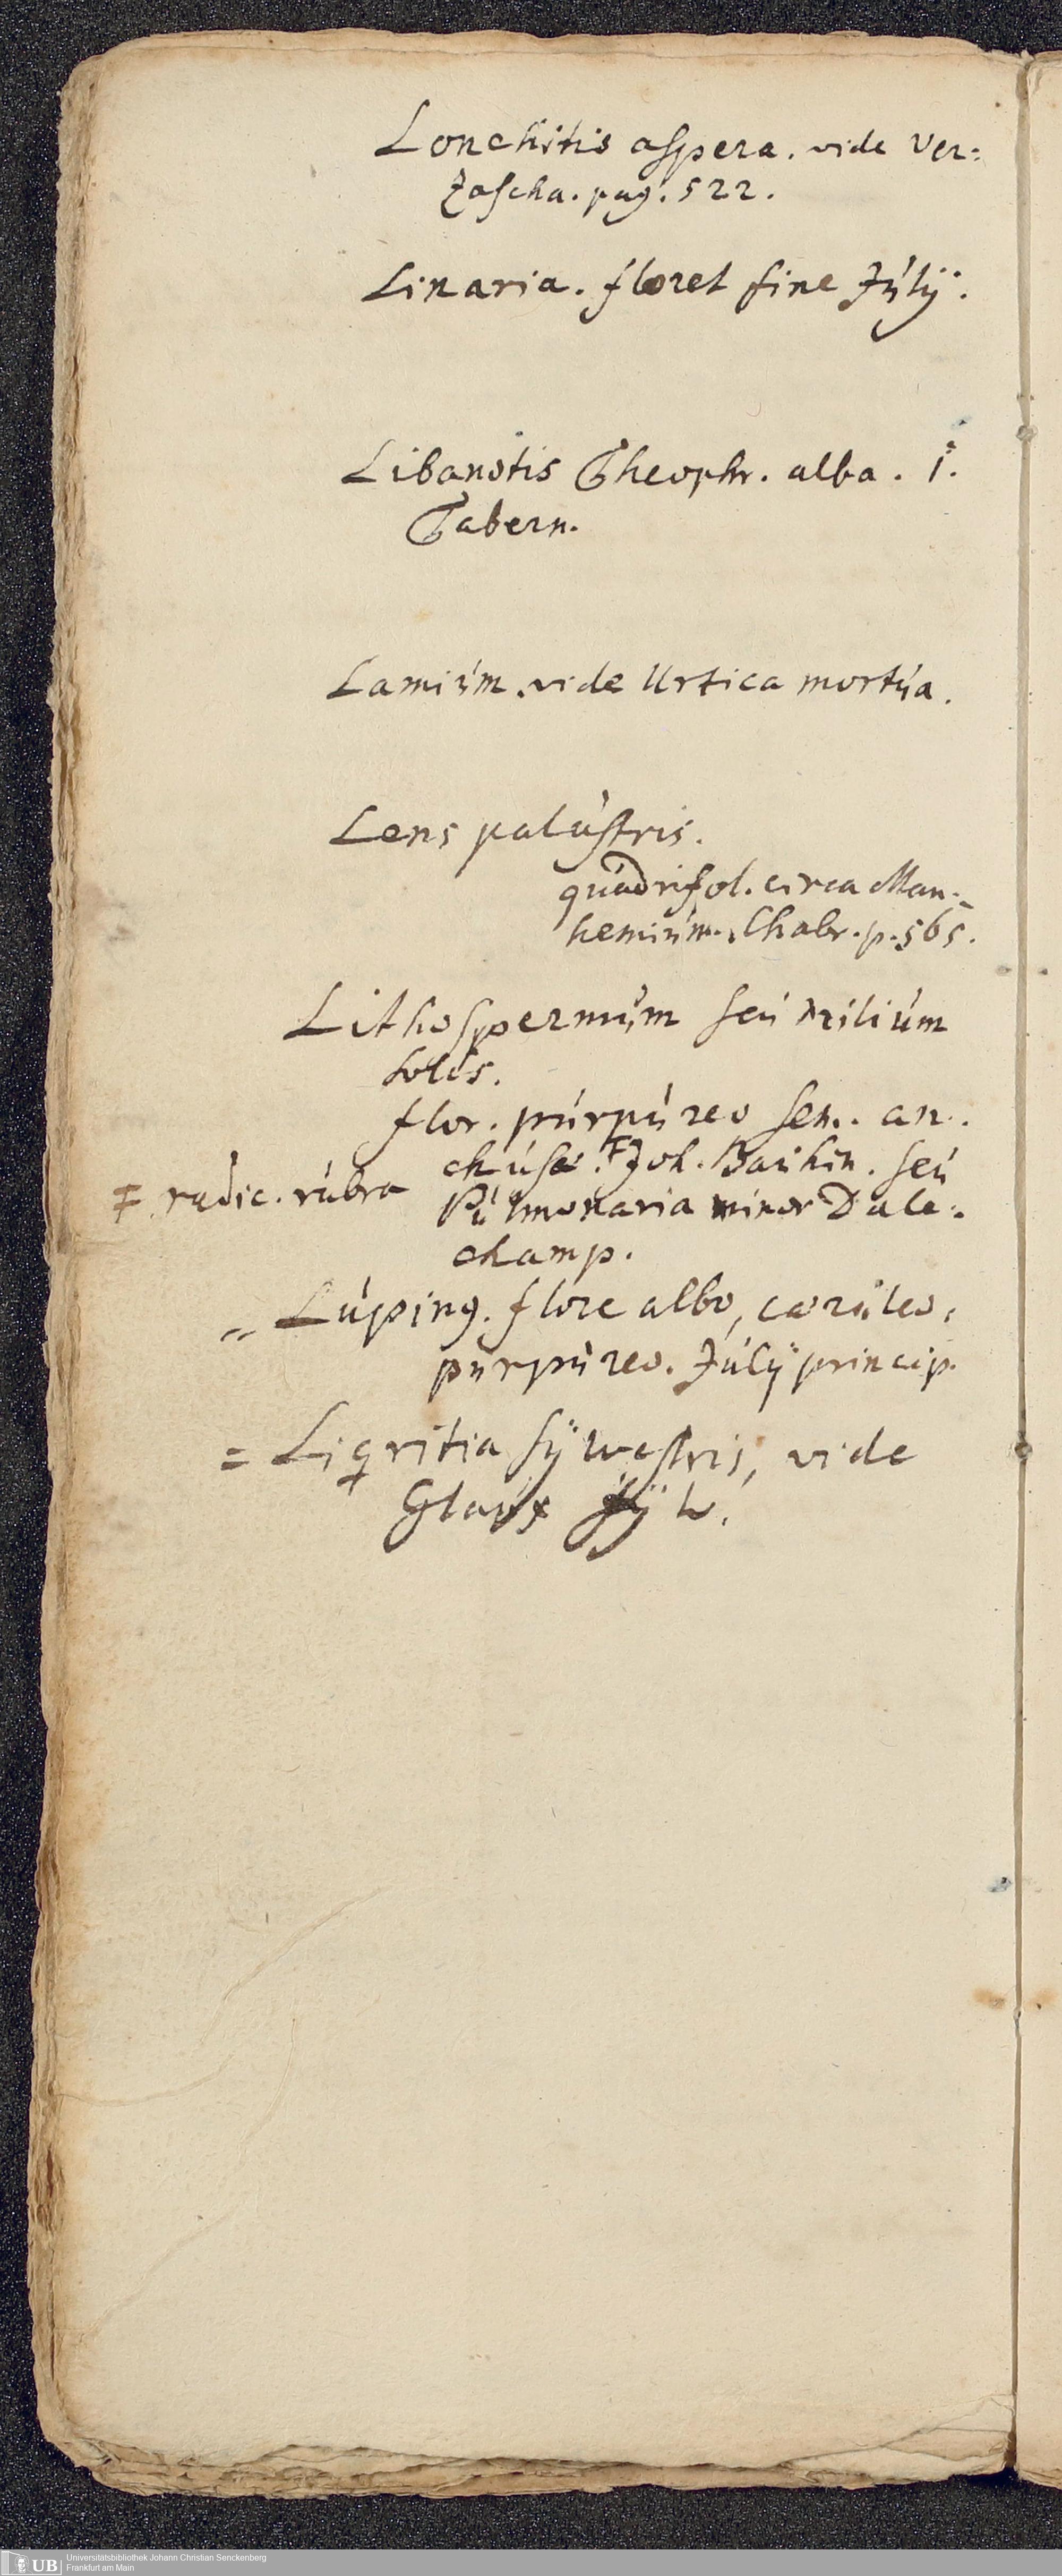 Lonchitis aspera. vide Ver=
zascha. pag. 522.
Linaria. floret fine Julij.
Libanotis Theophr. alba. 1.
Tabern.
Lamium. vide Urtica mortua.
Lens palustris.
quadrifol. circa Man=
hemium. Chabr. p. 565.
Lithospermum seu milium
solis.
flor. purpureo sem. an=
chusæ. ╪ Joh. Bauhin. seu
╪ radic. rubra
Pulmonaria minor Dale=
champ.
= Lupin9. flore albo, cæruleo,
purpureo. Julij princip.
= Liqritia sÿlvestris, vide
Glaux sÿlv.
UB Universitätsbibliothek Johann Christian Senckenberg
Frankfurt am Main